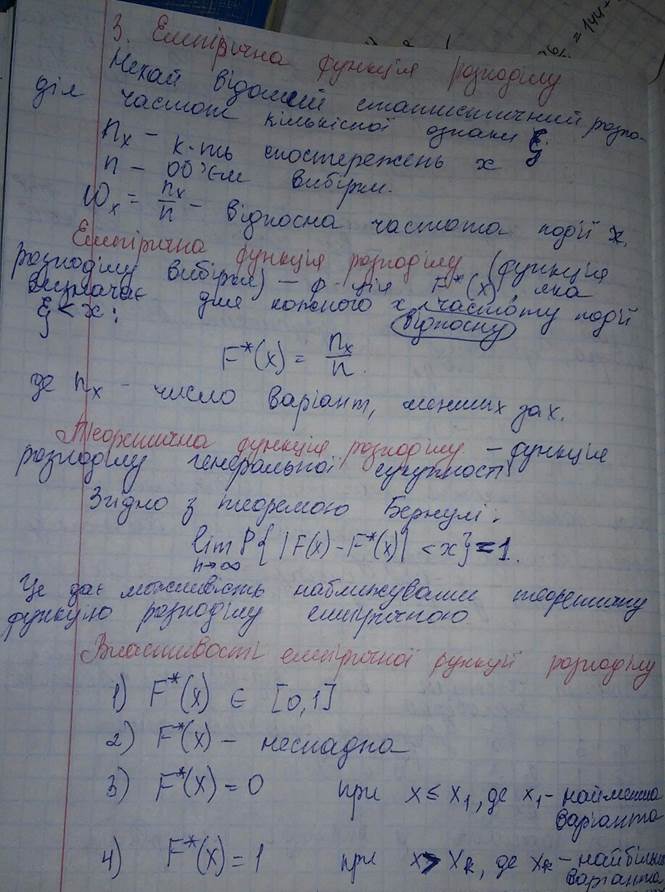 = 144 +
3. Емпірична функція розподілу
Нехай відомий статистичний розпо-
діл частот кількісної ознаки ξ
n_x - к-ть спостережень x
n - об'єм вибірки.
W_x = n_x/n - відносна частота події x.
Емпірична функція розподілу (функція
розподілу вибірки) - ф-ція F*(x), яка
визначає для кожного x частоту події
відносну
ξ < x:
F*(x) = n_x/n.
де n_x - число варіант, менших за x.
Теоретична функція розподілу - функція
розподілу генеральної сукупності
Згідно з теоремою Бернулі:
lim P{ |F(x) - F*(x)| < x} = 1.
n→∞
Це дає можливість наближувати теоретичну
функцію розподілу емпіричною
Властивості емпіричної функції розподілу
1) F*(x) ∈ [0,1]
2) F*(x) - неспадна
3) F*(x) = 0 при x ≤ x₁, де x₁ - найменша
варіанта
4) F*(x) = 1 при x > x_k, де x_k - найбільш
варіанта